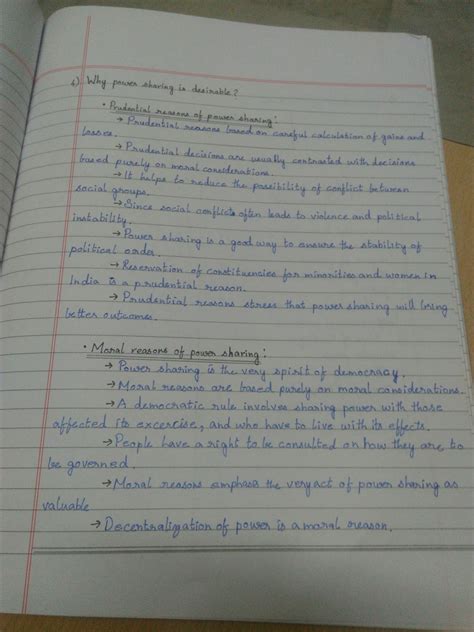 6) Why power sharing is desirable?
• Prudential reasons of power sharing:
→ Prudential reasons based on careful calculation of gains and
losses.
→ Prudential decisions are usually contrasted with decisions
based purely on moral considerations.
→ It helps to reduce the possibility of conflict between
social groups.
→ Since social conflicts often leads to violence and political
instability.
→ Power sharing is a good way to ensure the stability of
political order.
→ Reservation of constituencies for minorities and women in
India is a prudential reason.
→ Prudential reasons stress that power sharing will bring
better outcomes.
• Moral reasons of power sharing:
→ Power sharing is the very spirit of democracy.
→ Moral reasons are based purely on moral considerations.
→ A democratic rule involves sharing power with those
affected its excercise, and who have to live with its effects.
→ People have a right to be consulted on how they are to
be governed.
→ Moral reasons emphasis the very act of power sharing as
valuable
→ Decentralization of power is a moral reason.